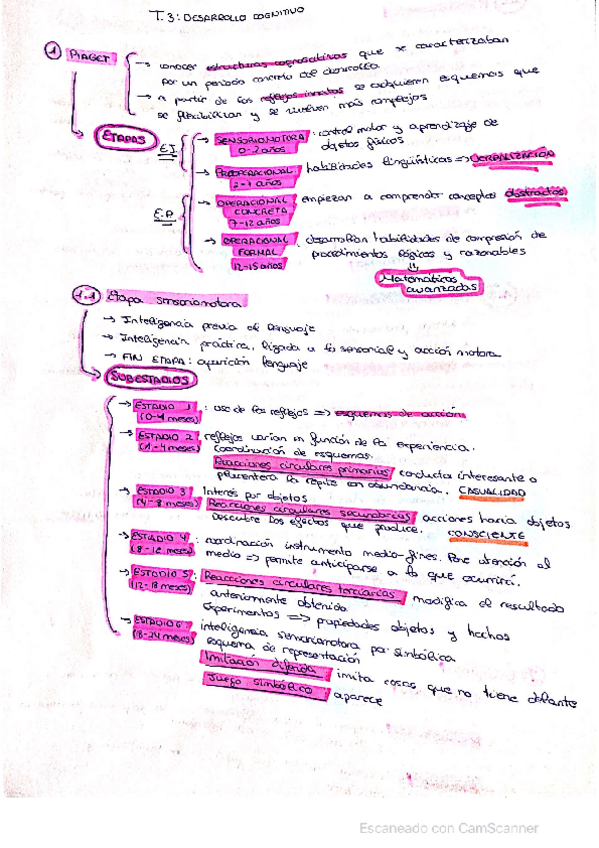 T. 3: DESARROLLO COGNITIVO
① PIAGET
→ conocer estructuras cognoscitivas que se caracterizaban
por un periodo concreto del desarrollo
→ a partir de los reflejos innatos se adquieren esquemas que
se flexibilizan y se vuelven más complejos
ETAPAS
E.I.
→ SENSORIOMOTORA: control motor y aprendizaje de
0-2 años objetos físicos
→ PREOPERACIONAL: habilidades lingüísticas => VERBALIZACIÓN
2-7 años
E.P.
→ OPERACIONAL empiezan a comprender conceptos abstractos
CONCRETA
7-12 años
→ OPERACIONAL desarrollan habilidades de compresión de
FORMAL procedimientos lógicos y razonables
12-15 años
Matemáticas
avanzadas
1.1 Etapa sensoriomotora
→ Inteligencia previa al lenguaje
→ Inteligencia práctica, ligada a lo sensorial y acción motora
→ FIN ETAPA: aparición lenguaje
SUBESTADIOS
→ ESTADIO 1: uso de los reflejos => esquemas de acción
(0-1 meses)
→ ESTADIO 2: reflejos varían en función de la experiencia.
(1-4 meses) Coordinación de esquemas.
Reacciones circulares primarias conducta interesante o
placentera la repite en abundancia. CASUALIDAD
→ ESTADIO 3 Interés por objetos
(4-8 meses) Reacciones circulares secundarias acciones hacia objetos
Descubre los efectos que produce. CONSCIENTE
→ ESTADIO 4: coordinación instrumento medio-fines. Pone atención al
(8-12 meses) medio => permite anticiparse a lo que ocurrirá.
→ ESTADIO 5: Reacciones circulares terciarias modifica el resultado
(12-18 meses) anteriormente obtenido
Experimentos => propiedades objetos y hechos
→ ESTADIO 6: inteligencia sensoriomotora por simbólica
(18-24 meses) esquema de representación
Imitación diferida imita cosas que no tiene delante
Juego simbólico aparece
Escaneado con CamScanner